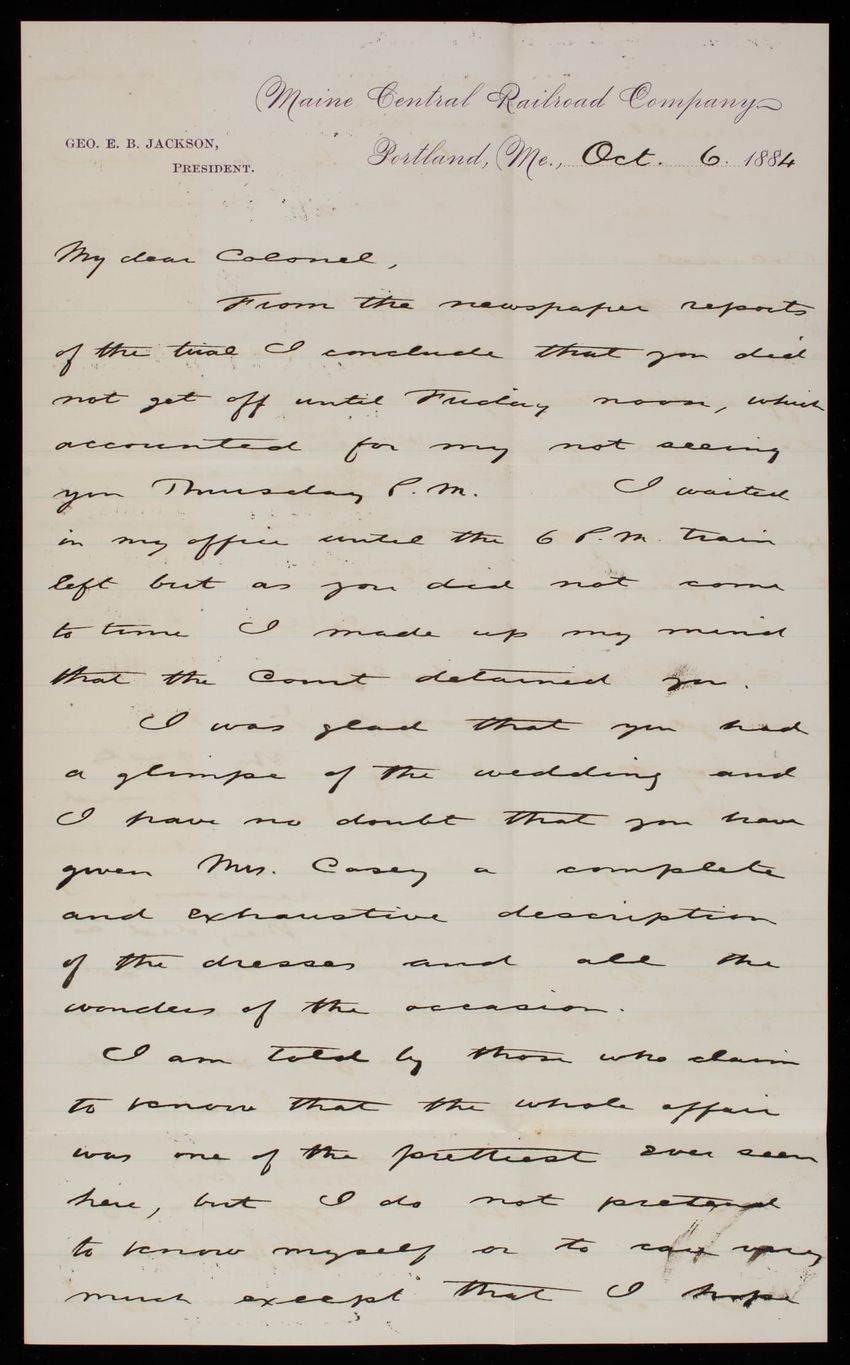 Maine Central Railroad Company
GEO. E. B. JACKSON,
PRESIDENT.
Portland, Me., Oct. 6. 1884
My dear Colonel,
From the newspaper reports
of the trial I conclude that you did
not get off until Friday noon, which
accounted for my not seeing
you Thursday P.M. I waited
in my office until the 6 P.M. train
left but as you did not come
to time I made up my mind
that the Court detained you.
I was glad that you had
a glimpse of the wedding and
I have no doubt that you have
given Mrs. Casey a complete
and exhaustive description
of the dresses and all the
wonders of the occasion.
I am told by those who claim
to know that the whole affair
was one of the prettiest ever seen
here, but I do not pretend
to know myself or to care very
much except that I hope